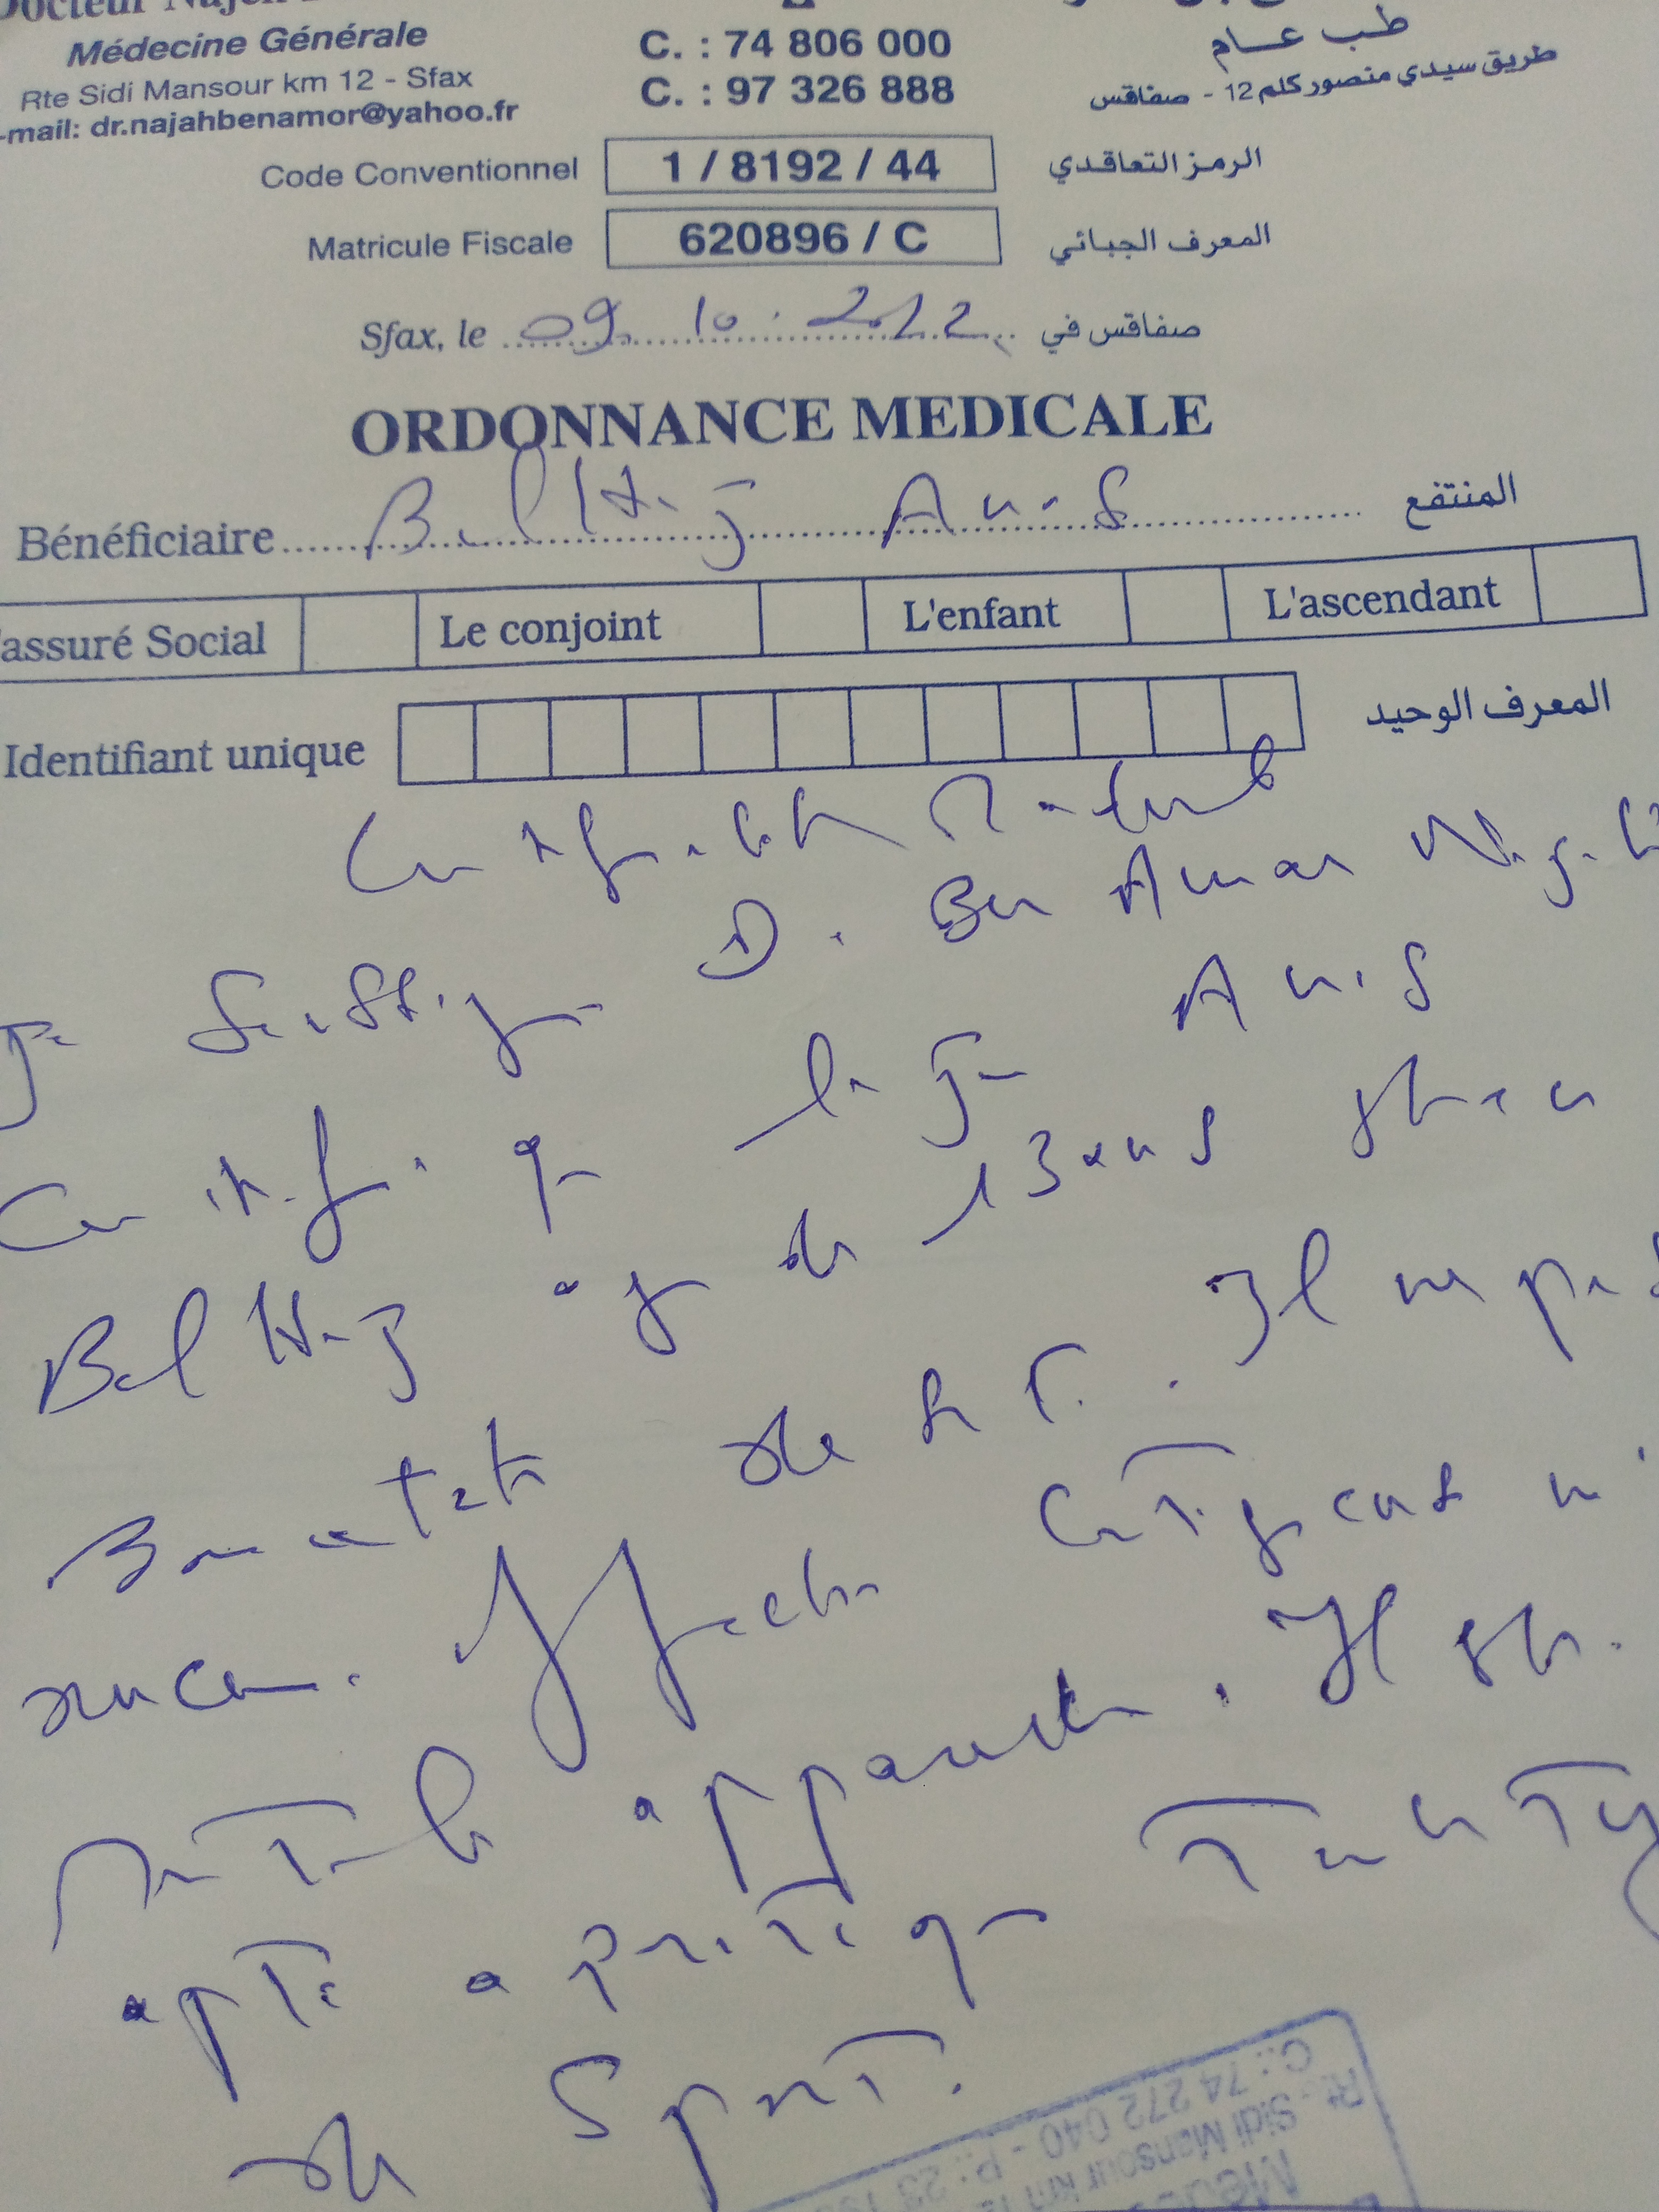 Docteur Najeh
Médecine Générale
Rte Sidi Mansour km 12 - Sfax
-mail: dr.najahbenamor@yahoo.fr
C. : 74 806 000
C. : 97 326 888
طب عام
طريق سيدي منصور كلم 12 - صفاقس
Code Conventionnel 1 / 8192 / 44 الرمز التعاقدي
Matricule Fiscale 620896 / C المعرف الجبائي
Sfax, le 09. 10. 2012 صفاقس في
ORDONNANCE MEDICALE
Bénéficiaire Bel Haj Anis المنتفع
assuré Social Le conjoint L'enfant L'ascendant
Identifiant unique المعرف الوحيد
Certificat Médical
Je soussigné D. Ben Amor Najeh
Certifie que le jeune Anis
Bel Haj âgé de 13 ans est en
Bon état de santé. Il ne
aucune affection contagieuse ni
mentale apparente. Il est
apte a pratiquer
de Sport.
C.: 74 272 040 - P.: 23
Rte Sidi Mansour km 12